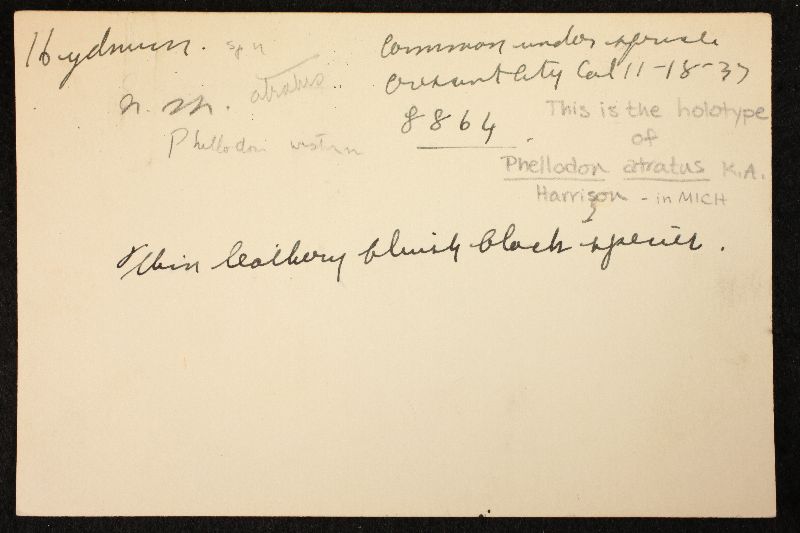 Hydnum. sp n
Common under spruce
atratus
Crescent City Cal 11-18-37
n. m.
8864
This is the holotype
of
Phellodon western
Phellodon atratus K.A.
Harrison - in MICH
Thin leathery bluish black species.